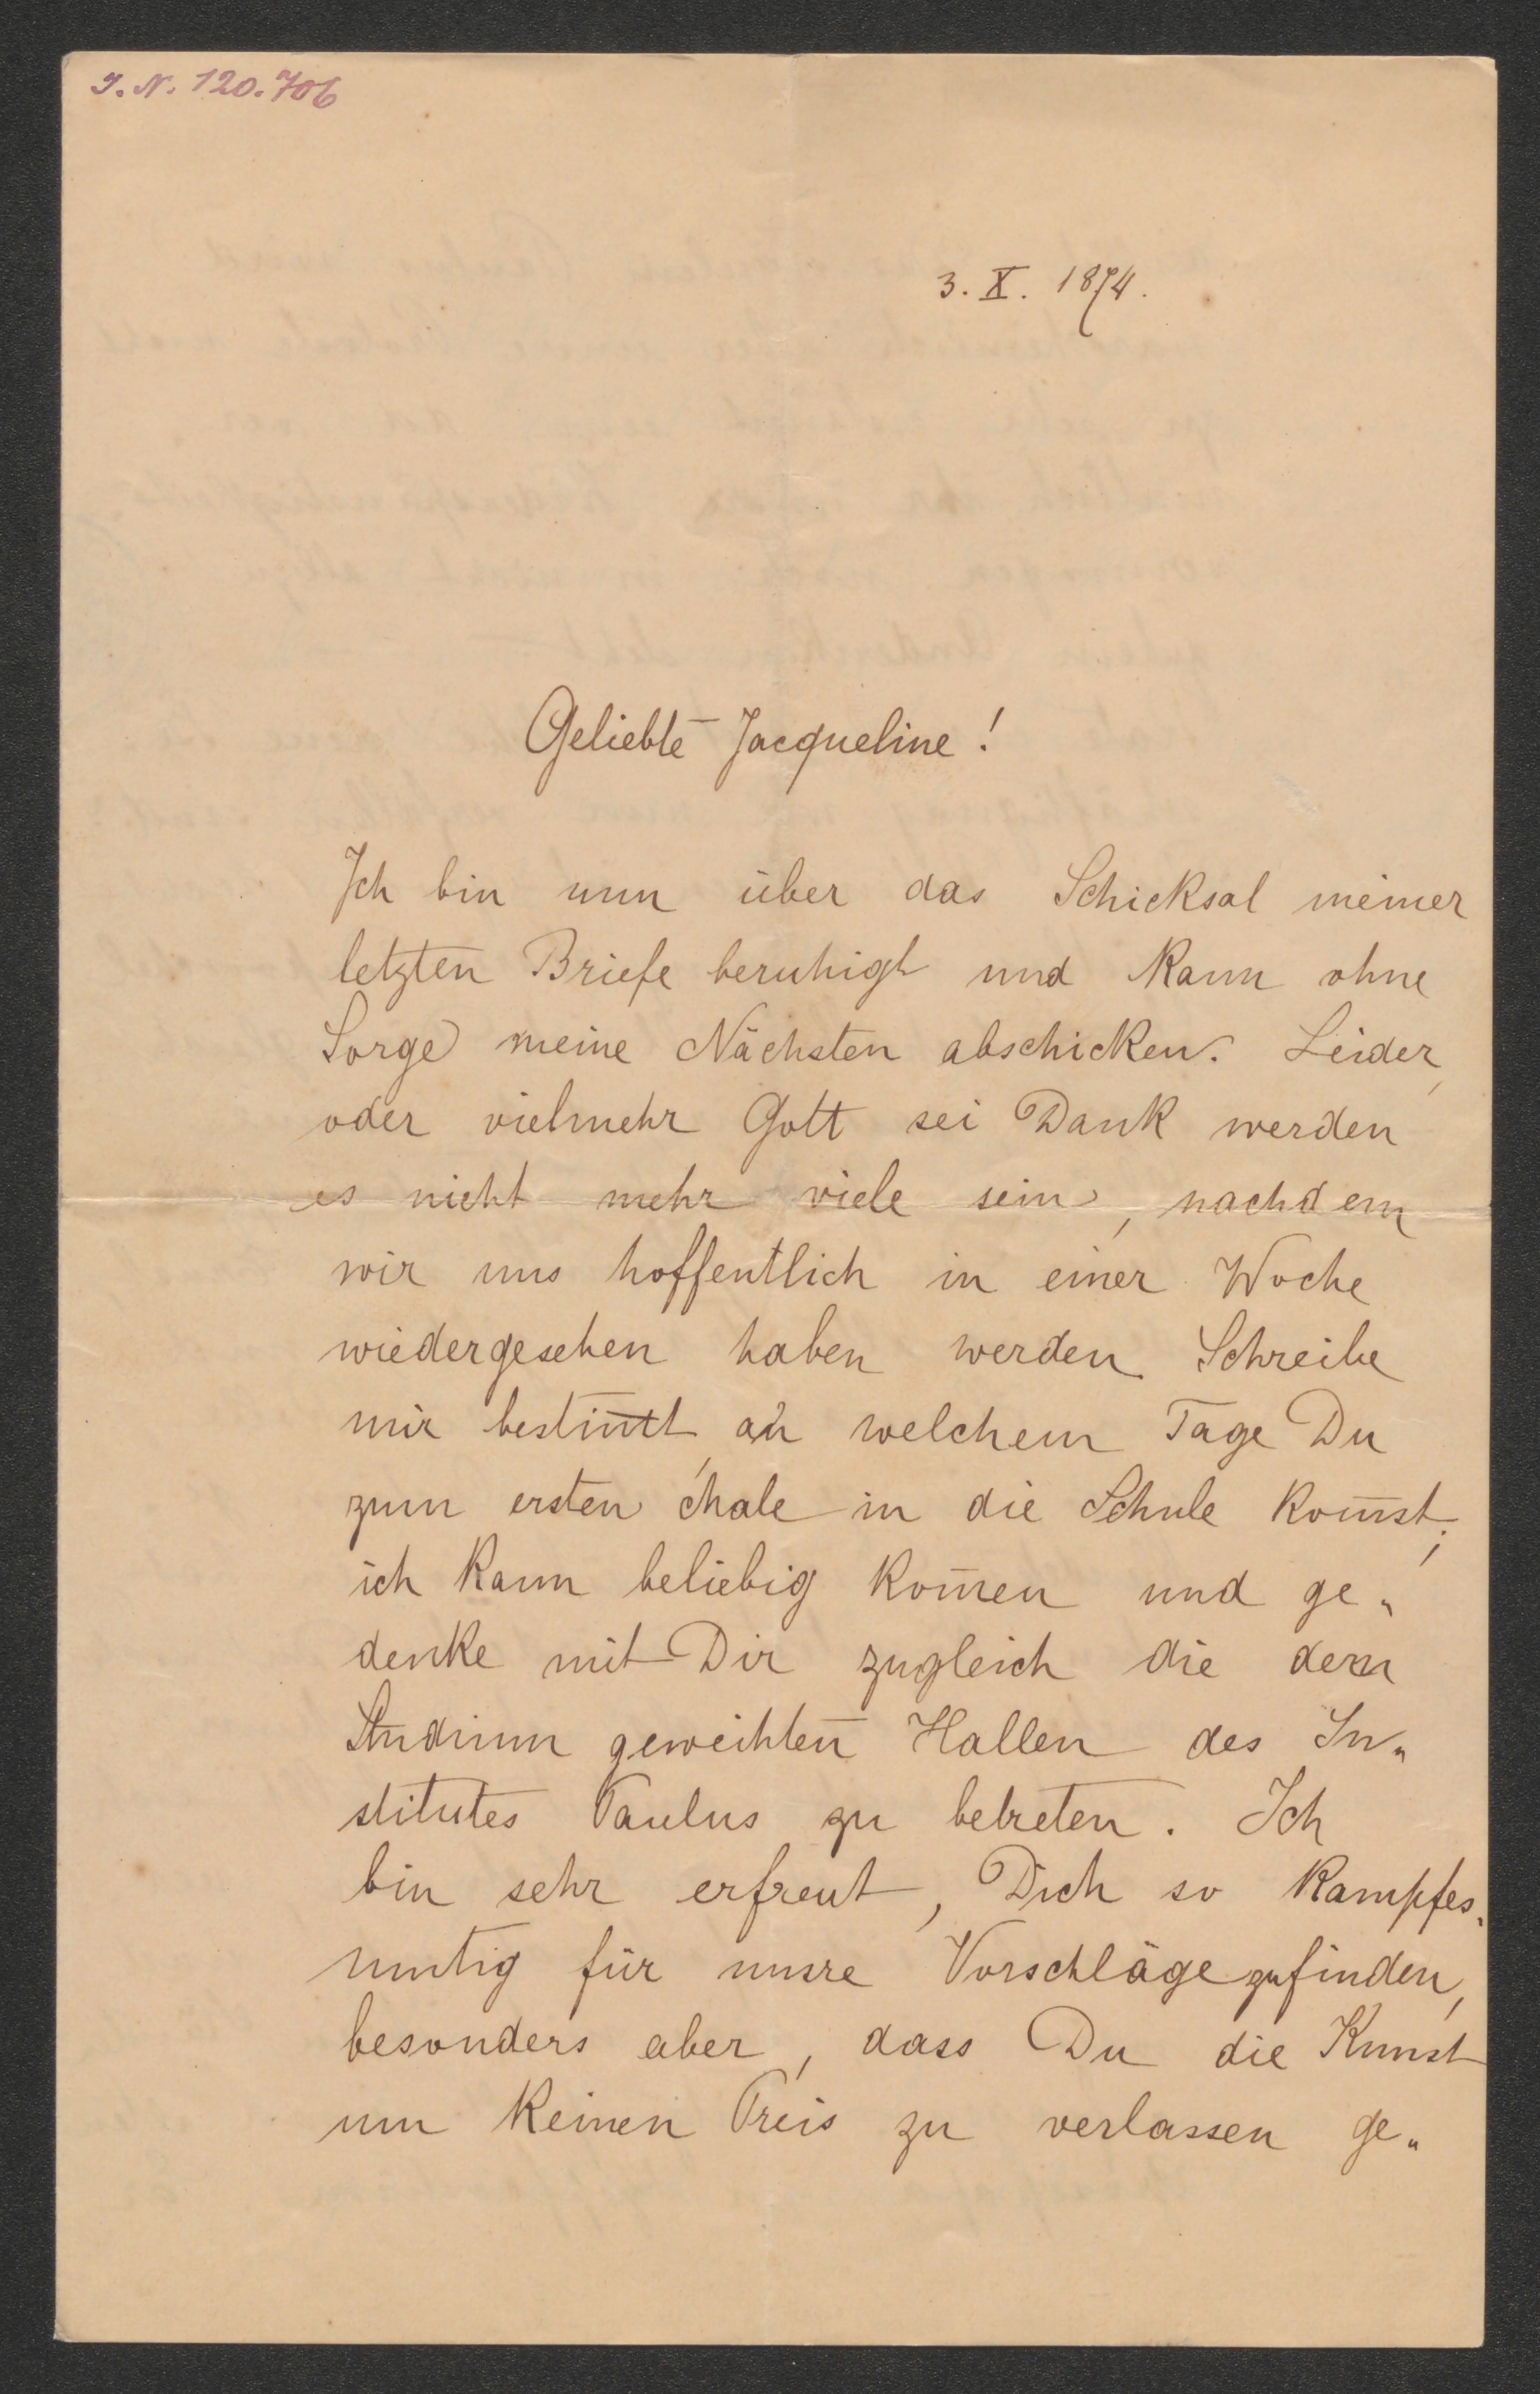 I. N. 120.706
3. X. 1874.
Geliebte Jacqueline!
Ich bin nun über das Schicksal meiner
letzten Briefe beruhigt und kann ohne
Sorge meine Nächsten abschicken. Leider,
oder vielmehr Gott sei Dank werden
es nicht mehr viele sein, nachdem
wir uns hoffentlich in einer Woche
wiedergesehen haben werden. Schreibe
mir bestim̅t, an welchem Tage Du
zum ersten Male in die Schule kom̅st;
ich kann beliebig kom̅en und ge„
denke mit Dir zugleich die dem
Studium geweihten Hallen des In„
stitutes Paulus zu betreten. Ich
bin sehr erfreut, Dich so kampfes„
mutig für unsre Vorschläge zu finden,
besonders aber, dass Du die Kunst
um keinen Preis zu verlassen ge„